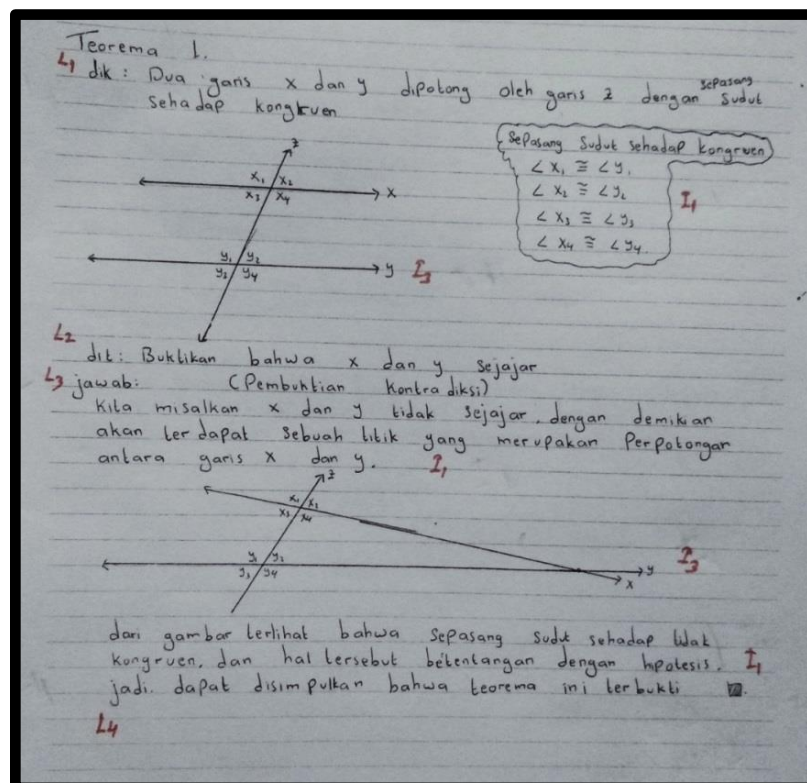 Teorema 1.
L1 dik : Dua garis x dan y dipotong oleh garis z dengan sepasang sudut
sehadap kongruen
Sepasang Sudut sehadap kongruen
∠ x₁ ≅ ∠ y₁
∠ x₂ ≅ ∠ y₂
∠ x₃ ≅ ∠ y₃
∠ x₄ ≅ ∠ y₄.
I1
z
x₁ x₂
x₃ x₄
x
y₁ y₂
y₃ y₄
y I3
L2
dit : Buktikan bahwa x dan y sejajar
L3 jawab : (Pembuktian Kontradiksi)
Kita misalkan x dan y tidak sejajar, dengan demikian
akan terdapat sebuah titik yang merupakan Perpotongan
antara garis x dan y. I1
z
x₁ x₂
x₃ x₄
y₁ y₂
y₃ y₄
y
x
I3
dari gambar terlihat bahwa sepasang sudut sehadap tidak
kongruen, dan hal tersebut betentangan dengan hpotesis. I1
jadi. dapat disimpulkan bahwa teorema ini terbukti
L4